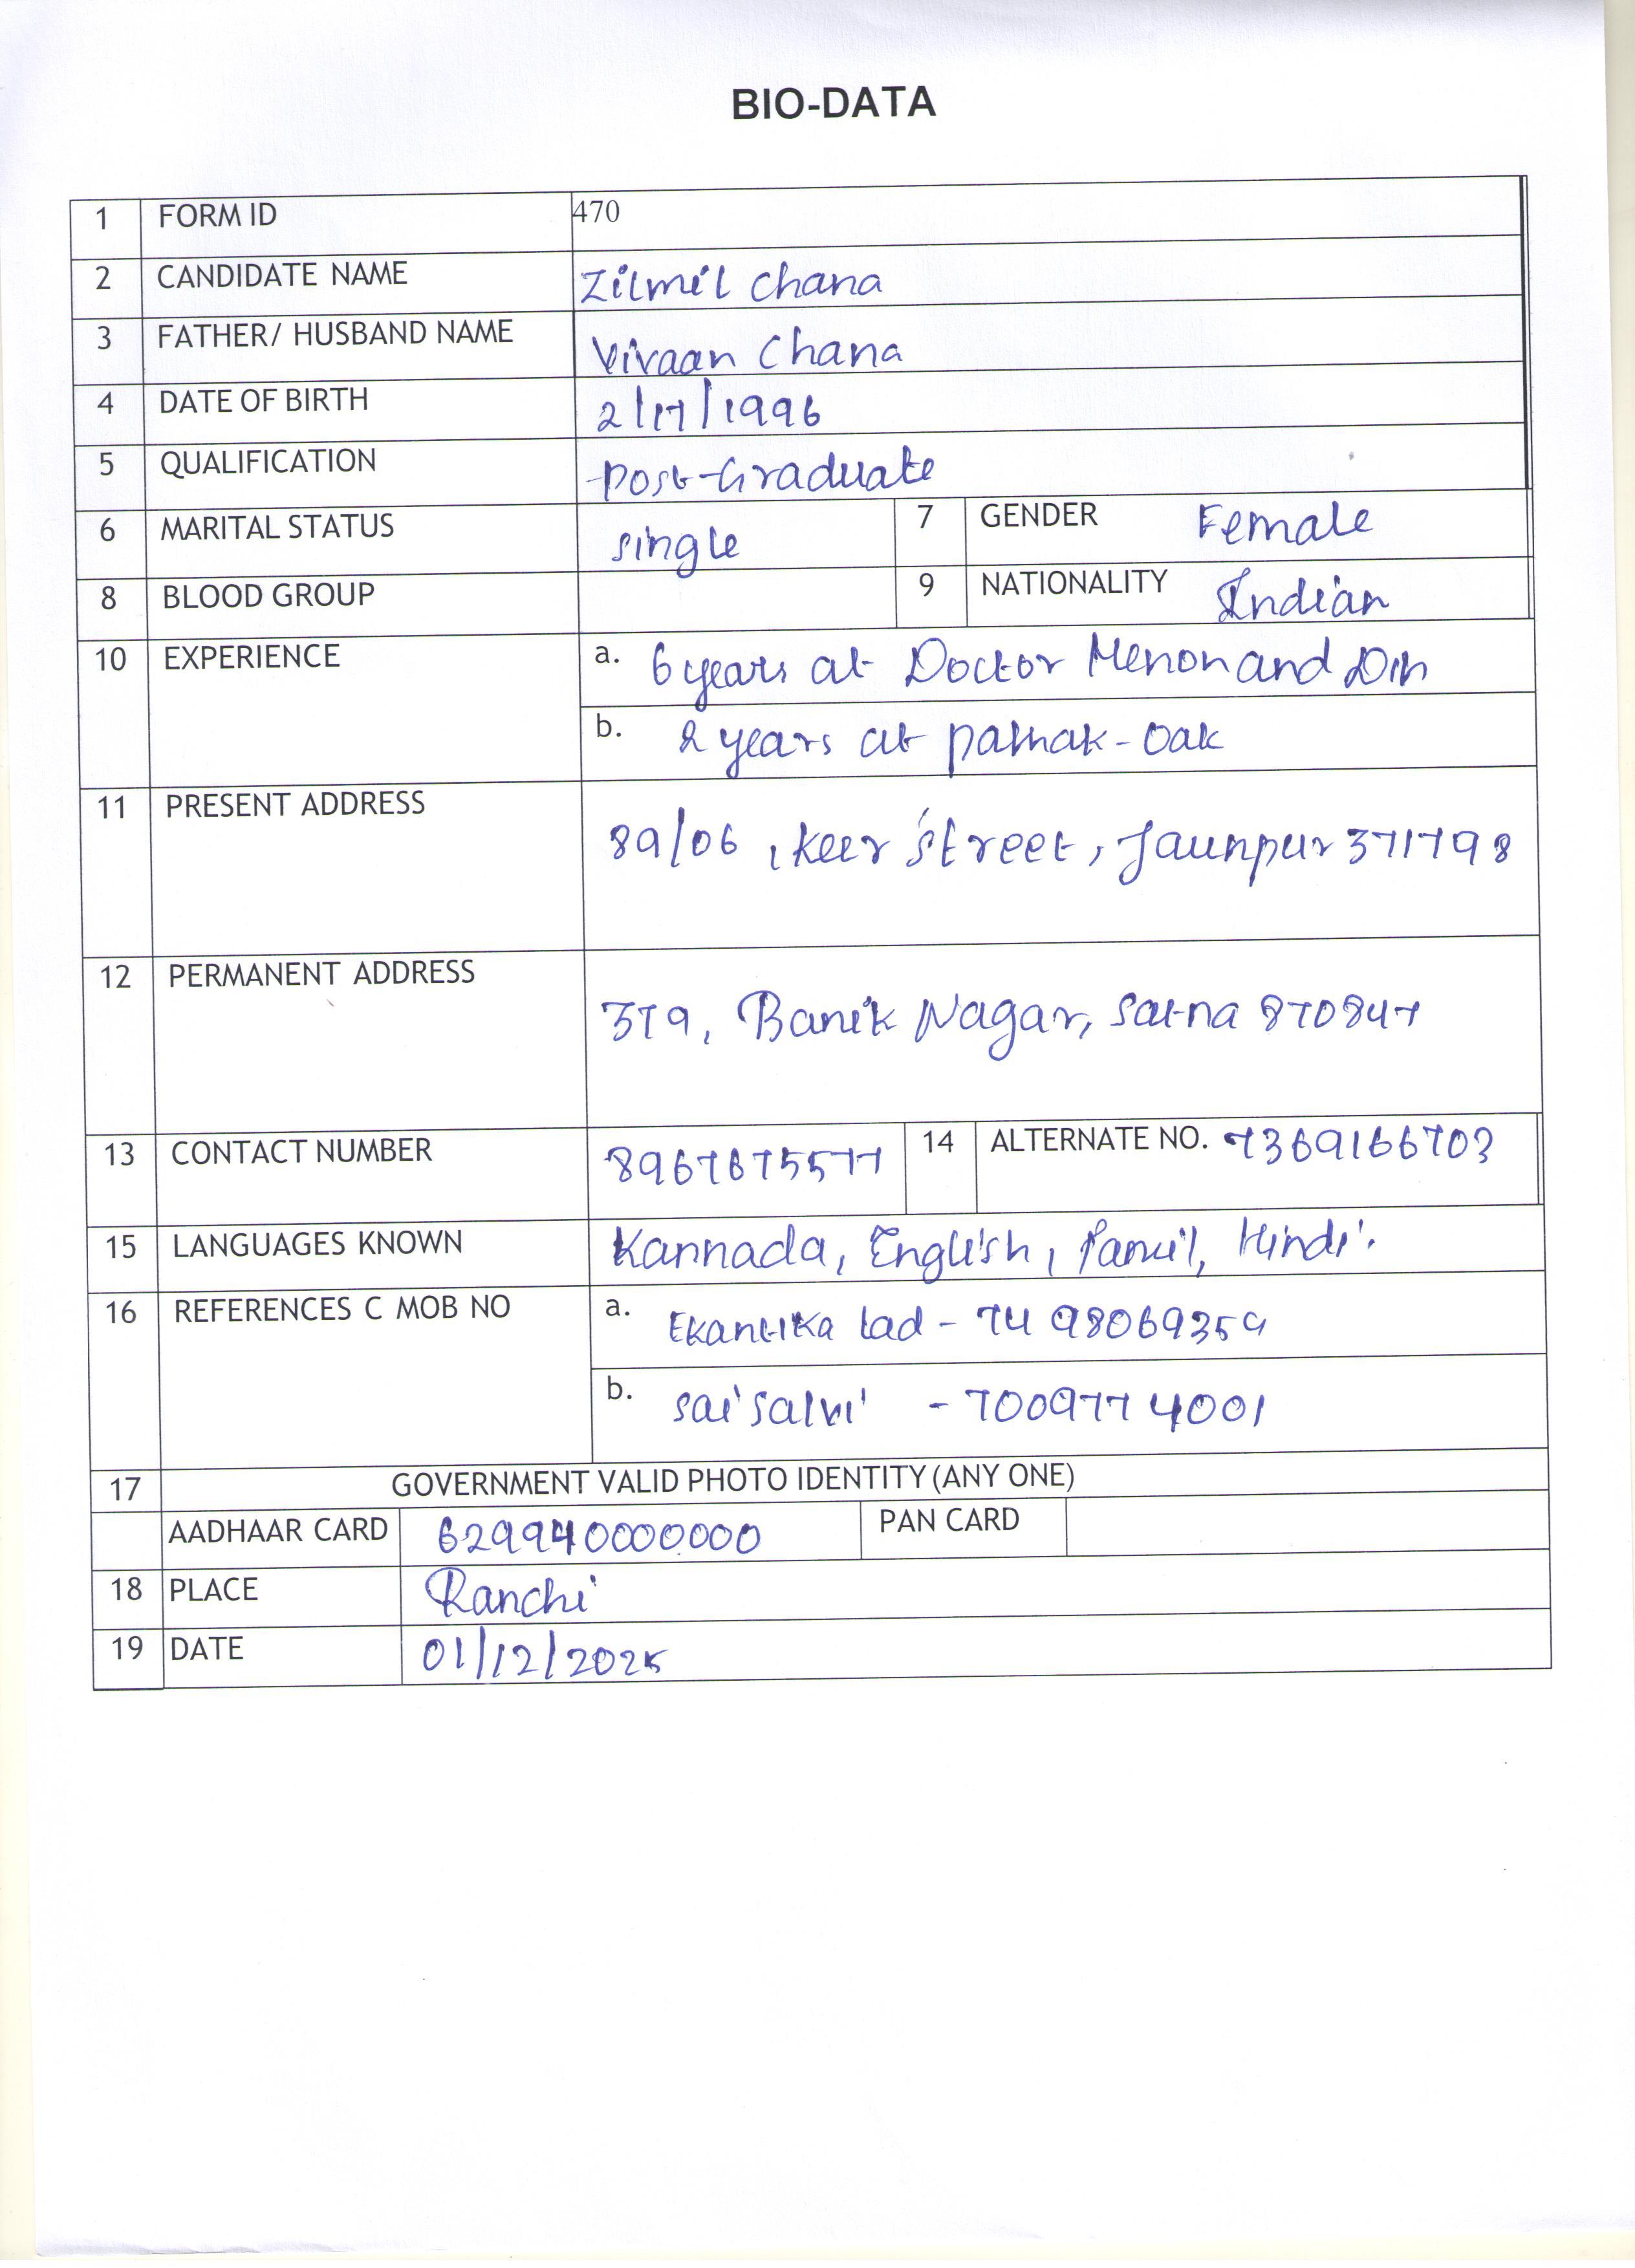 BIO-DATA
1 FORM ID 470
2 CANDIDATE NAME Zilmil Chana
3 FATHER/ HUSBAND NAME Vivaan Chana
4 DATE OF BIRTH 2/17/1996
5 QUALIFICATION Post-Graduate
6 MARITAL STATUS single 7 GENDER Female
8 BLOOD GROUP 9 NATIONALITY Indian
10 EXPERIENCE a. 6 years at Doctor Menon and Din
b. 2 years at pathak-Oak
11 PRESENT ADDRESS 89/06, Keer street, Jaunpur 371798
12 PERMANENT ADDRESS 379, Banik Nagar, Satna 870847
13 CONTACT NUMBER 8967675577 14 ALTERNATE NO. 7369166703
15 LANGUAGES KNOWN Kannada, English, Tamil, Hindi.
16 REFERENCES C MOB NO a. Ekantika lad - 7498069359
b. sai salvi - 7009774001
17 GOVERNMENT VALID PHOTO IDENTITY (ANY ONE)
AADHAAR CARD 629940000000 PAN CARD
18 PLACE Ranchi
19 DATE 01/12/2025